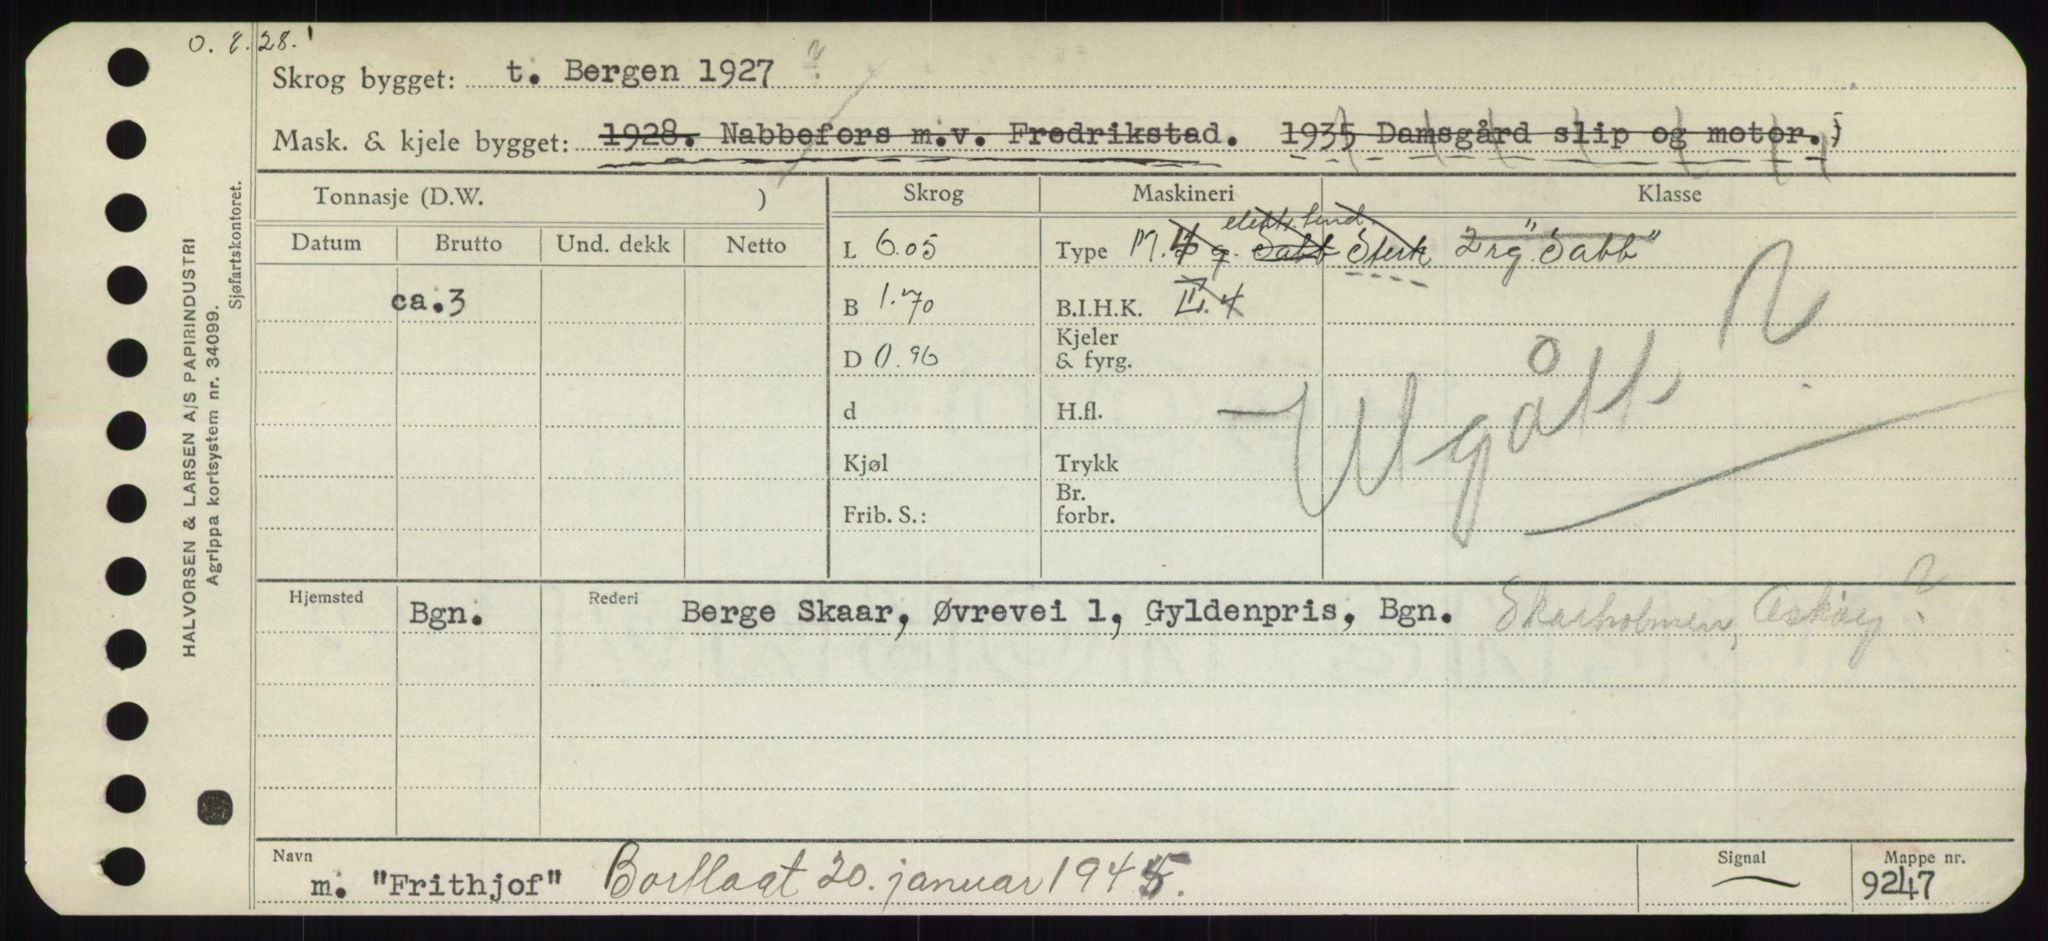 O. 8. 28.
Skrog bygget: t. Bergen 1927 ?
Mask. & kjele bygget: 1928. Nabbefors m.v. Fredrikstad. 1935 Damsgård slip og motor.
Tonnasje (D.W. ) Skrog Maskineri Klasse
Datum Brutto Und. dekk Netto
elektr. tend.
L 6.05 Type M. 4 g. Sabb Sterk 2 rg "Sabb"
ca.3 B 1.70 B.I.H.K. II. 4
Kjeler
D 0.96 & fyrg.
Utgått ?
d H.fl.
Kjøl Trykk
Br.
Frib. S.: forbr.
Hjemsted Bgn. Rederi Berge Skaar, Øvrevei 1, Gyldenpris, Bgn. Skarholmen, Askøy ?
Navn m. "Frithjof" Bortlagt 20. januar 1945. Signal Mappe nr. 9247
HALVORSEN & LARSEN A/S PAPIRINDUSTRI
Agrippa kortsystem nr. 34099.
Sjøfartskontoret.